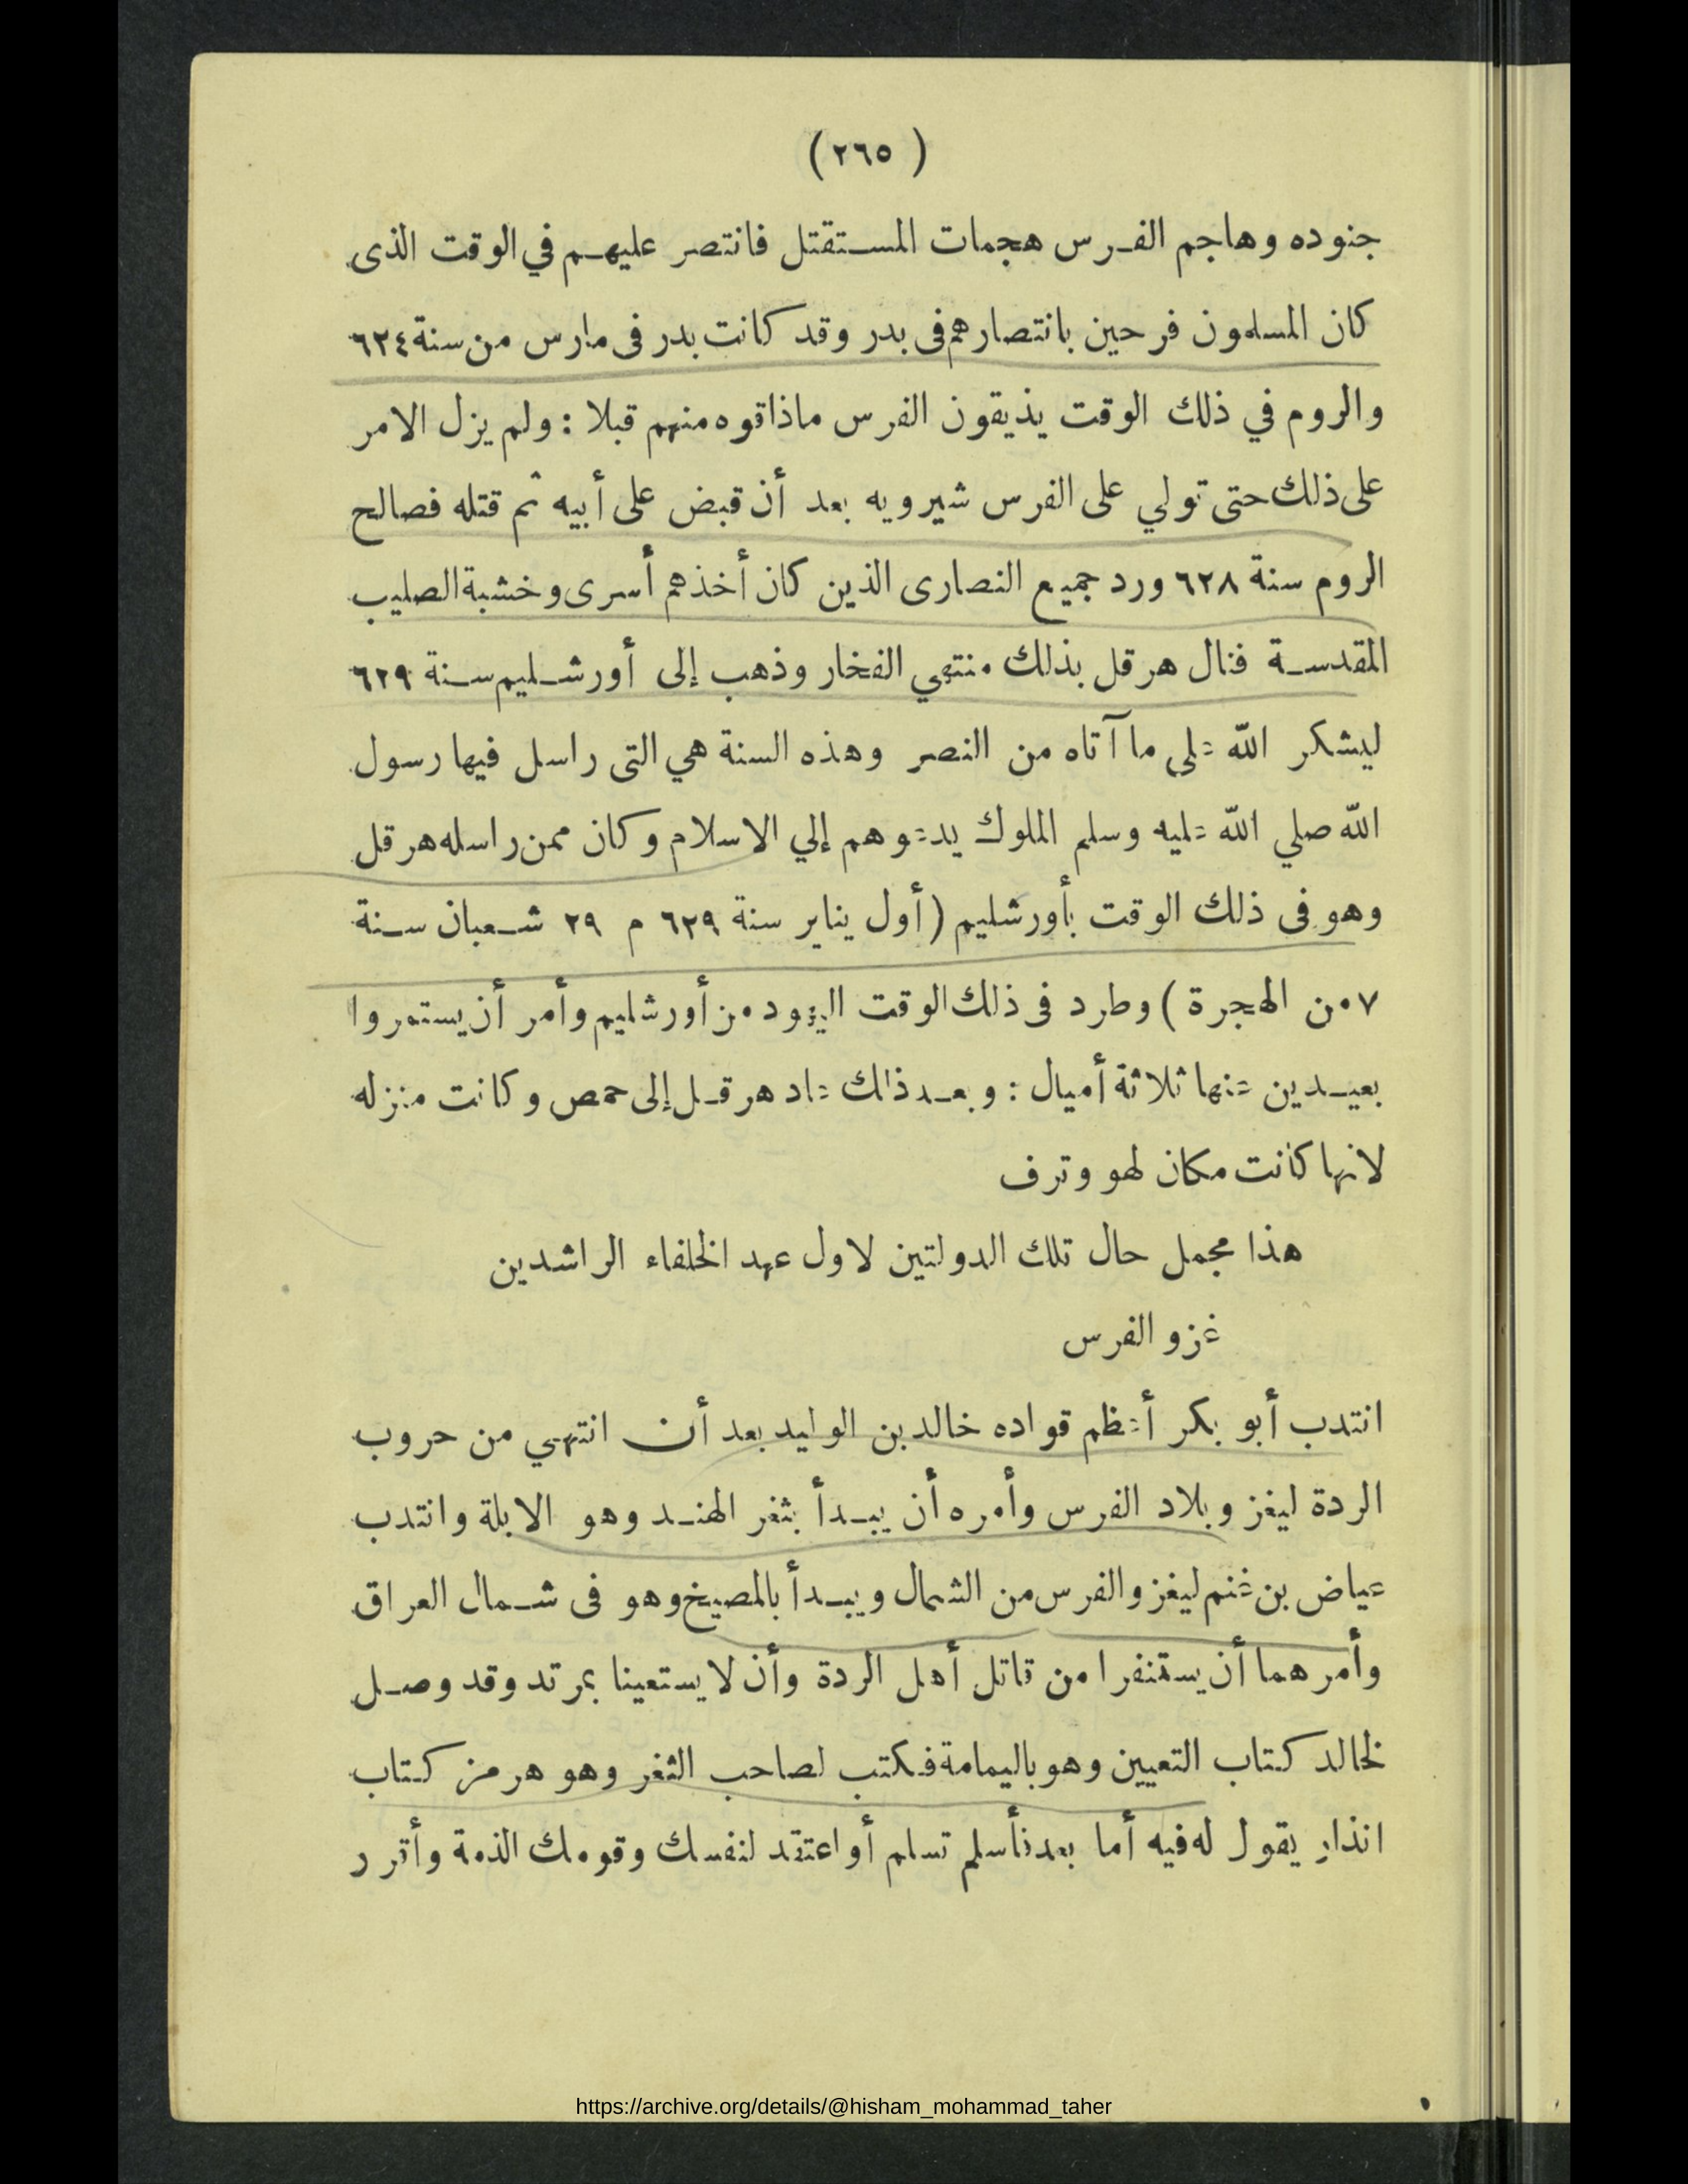 ( ٢٦٥ )
جنوده وهاجم الفرس هجمات المستقتل فانتصر عليهم في الوقت الذى
كان المسلمون فرحين بانتصارهم فى بدر وقد كانت بدر فى مارس من سنة ٦٢٤
والروم في ذلك الوقت يذيقون الفرس ماذاقوه منهم قبلا : ولم يزل الامر
على ذلك حتى تولي على الفرس شيرويه بعد أن قبض على أبيه ثم قتله فصالح
الروم سنة ٦٢٨ ورد جميع النصارى الذين كان أخذهم أسرى وخشبة الصليب
المقدسة فنال هرقل بذلك منتهي الفخار وذهب إلى أورشليم سنة ٦٢٩
ليشكر الله على ما آتاه من النصر وهذه السنة هي التى راسل فيها رسول
الله صلي الله عليه وسلم الملوك يدعوهم إلي الاسلام وكان ممن راسله هرقل
وهو فى ذلك الوقت بأورشليم ( أول يناير سنة ٦٢٩ م ٢٩ شعبان سنة
٧ من الهجرة ) وطرد فى ذلك الوقت اليهود من أورشليم وأمر أن يستمروا
بعيدين عنها ثلاثة أميال : وبعد ذلك عاد هرقل إلى حمص وكانت منزله
لانها كانت مكان لهو وترف
هذا مجمل حال تلك الدولتين لاول عهد الخلفاء الراشدين
غزو الفرس
انتدب أبو بكر أعظم قواده خالد بن الوليد بعد أن انتهي من حروب
الردة ليغزو بلاد الفرس وأمره أن يبدأ بثغر الهند وهو الابلة وانتدب
عياض بن غنم ليغزو الفرس من الشمال ويبدأ بالمصيخ وهو فى شمال العراق
وأمرهما أن يستنفرا من قاتل أهل الردة وأن لا يستعينا بمرتد وقد وصل
لخالد كتاب التعيين وهو باليمامة فكتب لصاحب الثغر وهو هرمز كتاب
انذار يقول له فيه أما بعد فأسلم تسلم أو اعتقد لنفسك وقومك الذمة وأقرر
https://archive.org/details/@hisham_mohammad_taher